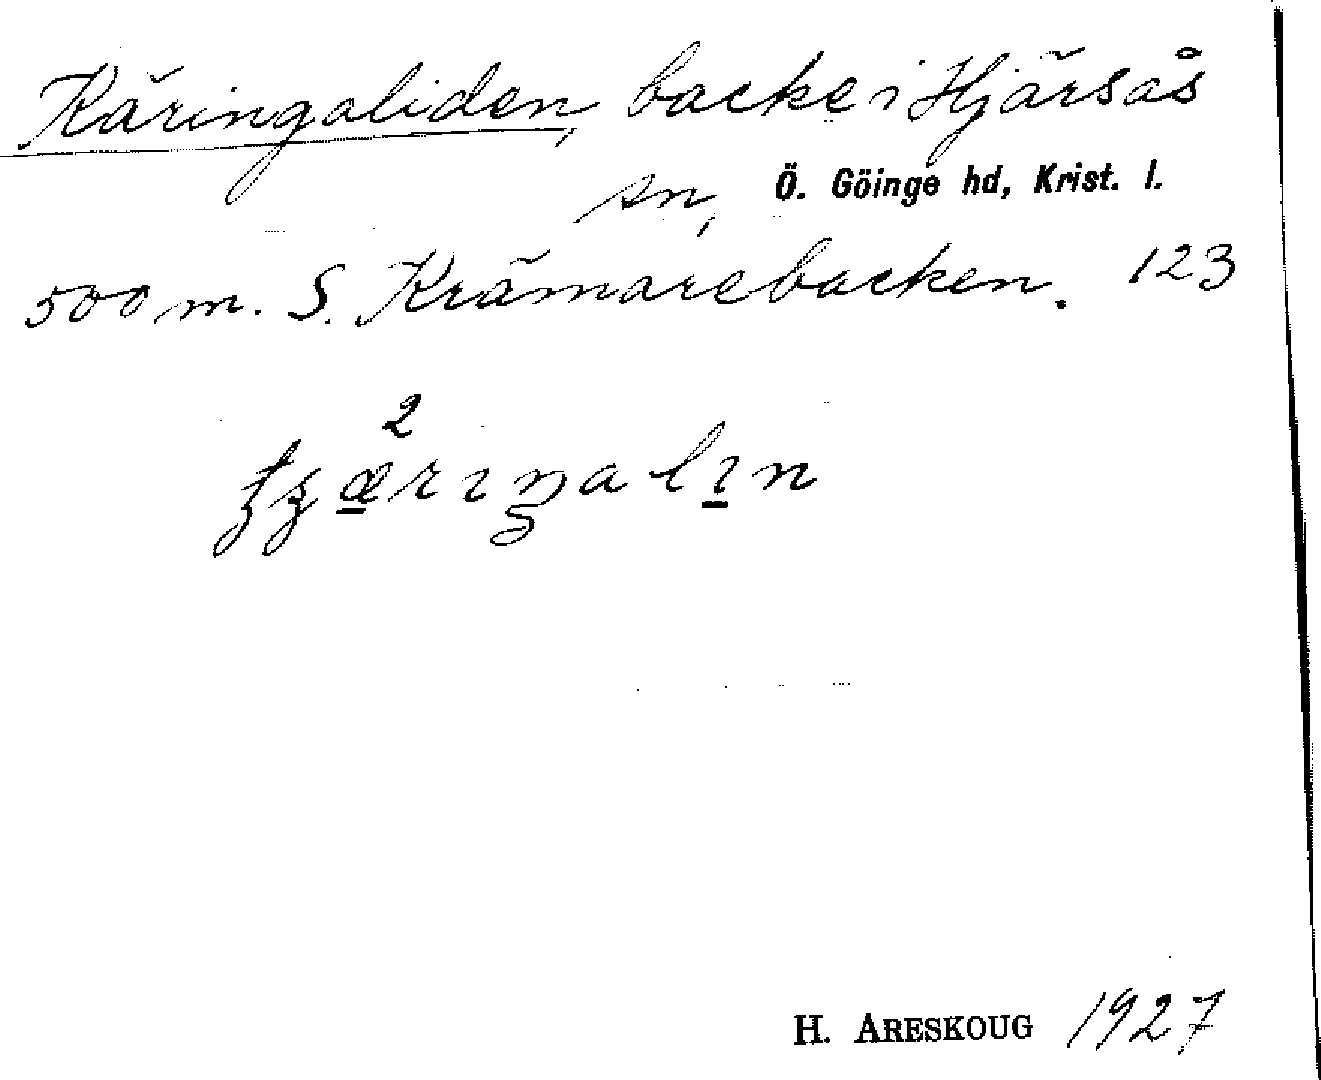 Käringaliden, backe i Hjärsås
sn, Ö. Göinge hd, Krist. l.
500 m. S. Krämarebacken. 123
2
H. ARESKOUG 1927